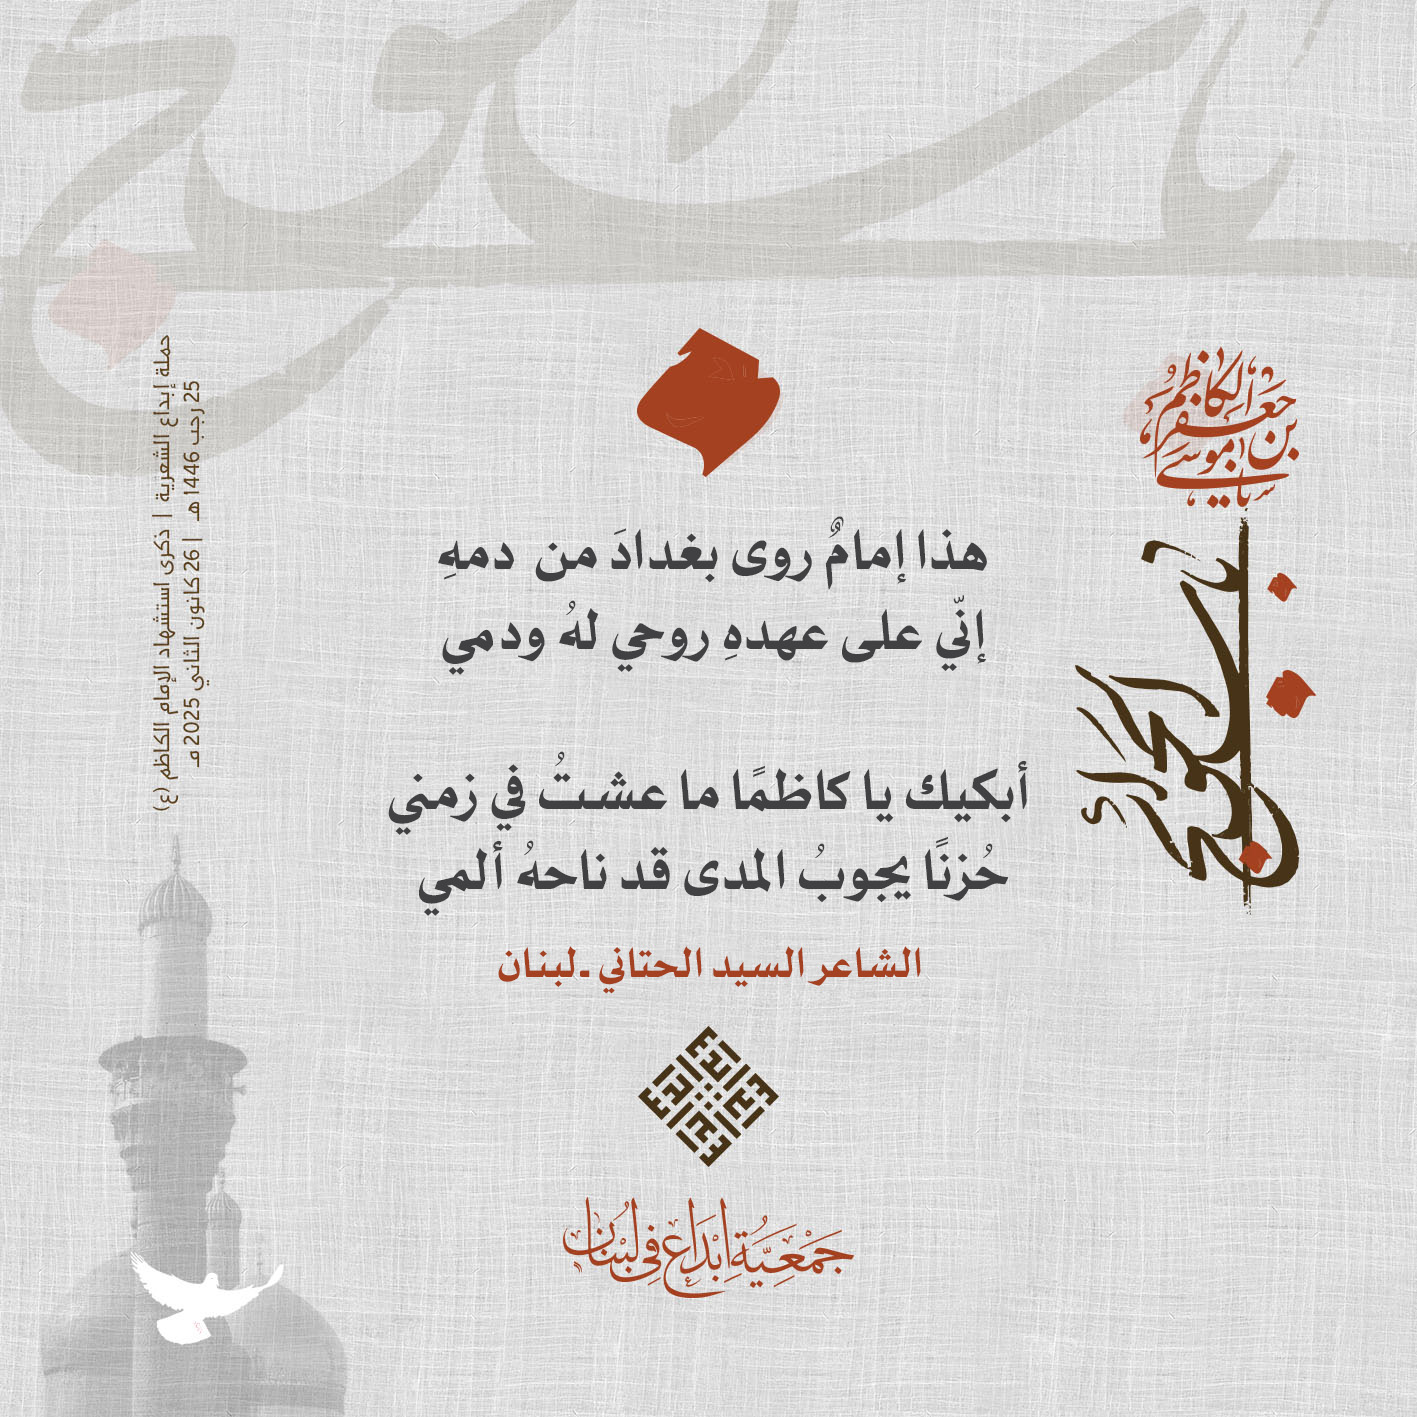 يا موسى
بن جعفر
الكاظم
باب الحوائج
هذا إمامٌ روى بغدادَ من دمهِ
إنّي على عهدهِ روحي لهُ ودمي
أبكيك يا كاظمًا ما عشتُ في زمني
حُزنًا يجوبُ المدى قد ناحهُ ألمي
الشاعر السيد الحتاني ـ لبنان
جَمْعِيَّةُ إِبْدَاع فِي لُبْنَان
حملة إبداع الشعرية | ذكرى استشهاد الإمام الكاظم (ع)
25 رجب 1446 هـ | 26 كانون الثاني 2025 مـ